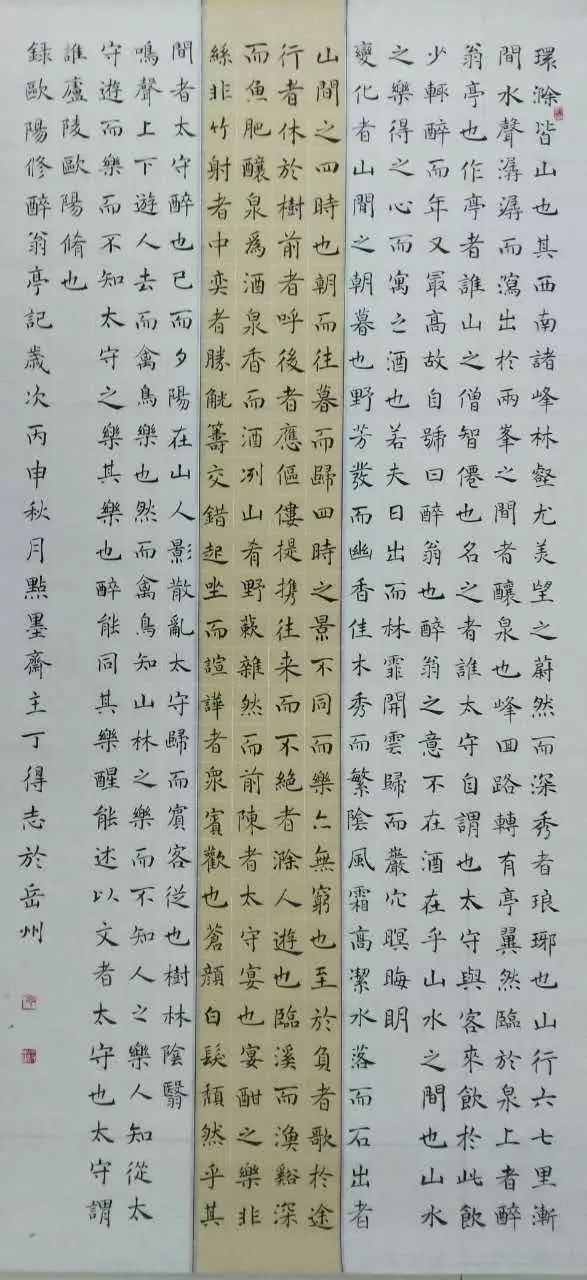 環滁皆山也其西南諸峰林壑尤美望之蔚然而深秀者琅琊也山行六七里漸
間水聲潺潺而瀉出於兩峯之間者釀泉也峰回路轉有亭翼然臨於泉上者醉
翁亭也作亭者誰山之僧智僊也名之者誰太守自謂也太守與客來飲於此飲
少輒醉而年又最高故自號曰醉翁也醉翁之意不在酒在乎山水之間也山水
之樂得之心而寓之酒也若夫日出而林霏開雲歸而巖穴暝晦明
變化者山間之朝暮也野芳發而幽香佳木秀而繁陰風霜高潔水落而石出者
山間之四時也朝而往暮而歸四時之景不同而樂亦無窮也至於負者歌於途
行者休於樹前者呼後者應傴僂提携往来而不絕者滁人遊也臨溪而漁谿深
而魚肥釀泉爲酒泉香而酒冽山肴野蔌雜然而前陳者太守宴也宴酣之樂非
絲非竹射者中奕者勝觥籌交錯起坐而諠譁者衆賓歡也蒼顏白髮頹然乎其
間者太守醉也已而夕陽在山人影散亂太守歸而賓客從也樹林陰翳
鳴聲上下遊人去而禽鳥樂也然而禽鳥知山林之樂而不知人之樂人知從太
守遊而樂而不知太守之樂其樂也醉能同其樂醒能述以文者太守也太守謂
誰廬陵歐陽脩也
錄歐陽修醉翁亭記歲次丙申秋月點墨齋主丁得志於岳州